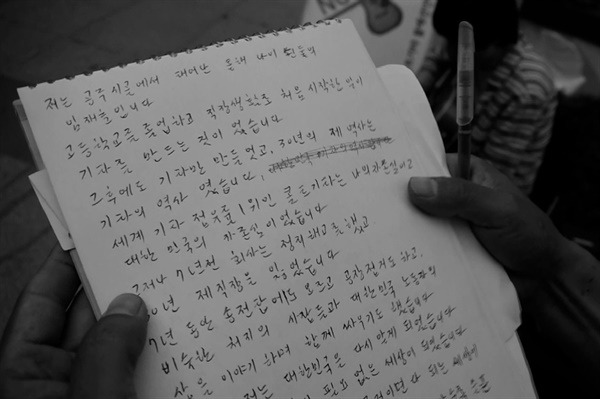 저는 공주 시골에서 태어난 올해 나이 쉰둘의
임재춘 입니다
고등학교를 졸업하고 직장생활로 처음 시작한 일이
기타를 만드는 것이 였습니다
그후에도 기타만 만들었고, 30년의 제 역사는
기타의 역사 였습니다,
세계 기타 점유율 1위인 콜트기타는 나의 자존심이고
대한 민국의 자존심 이였습니다
그러나 7년전 회사는 정리해고를 했고
30년 제직장을 잃었습니다
7년 동안 송전탑에도 오르고 공장점거도 하고,
비슷한 처지의 사람들과 대한민국 노동자의
삶을 이야기 하며 함께 싸우기도 했습니다
저는 대한민국을 다시 알게 되었습니다
필요 없는 세상이 되었습니다
되는 세상이